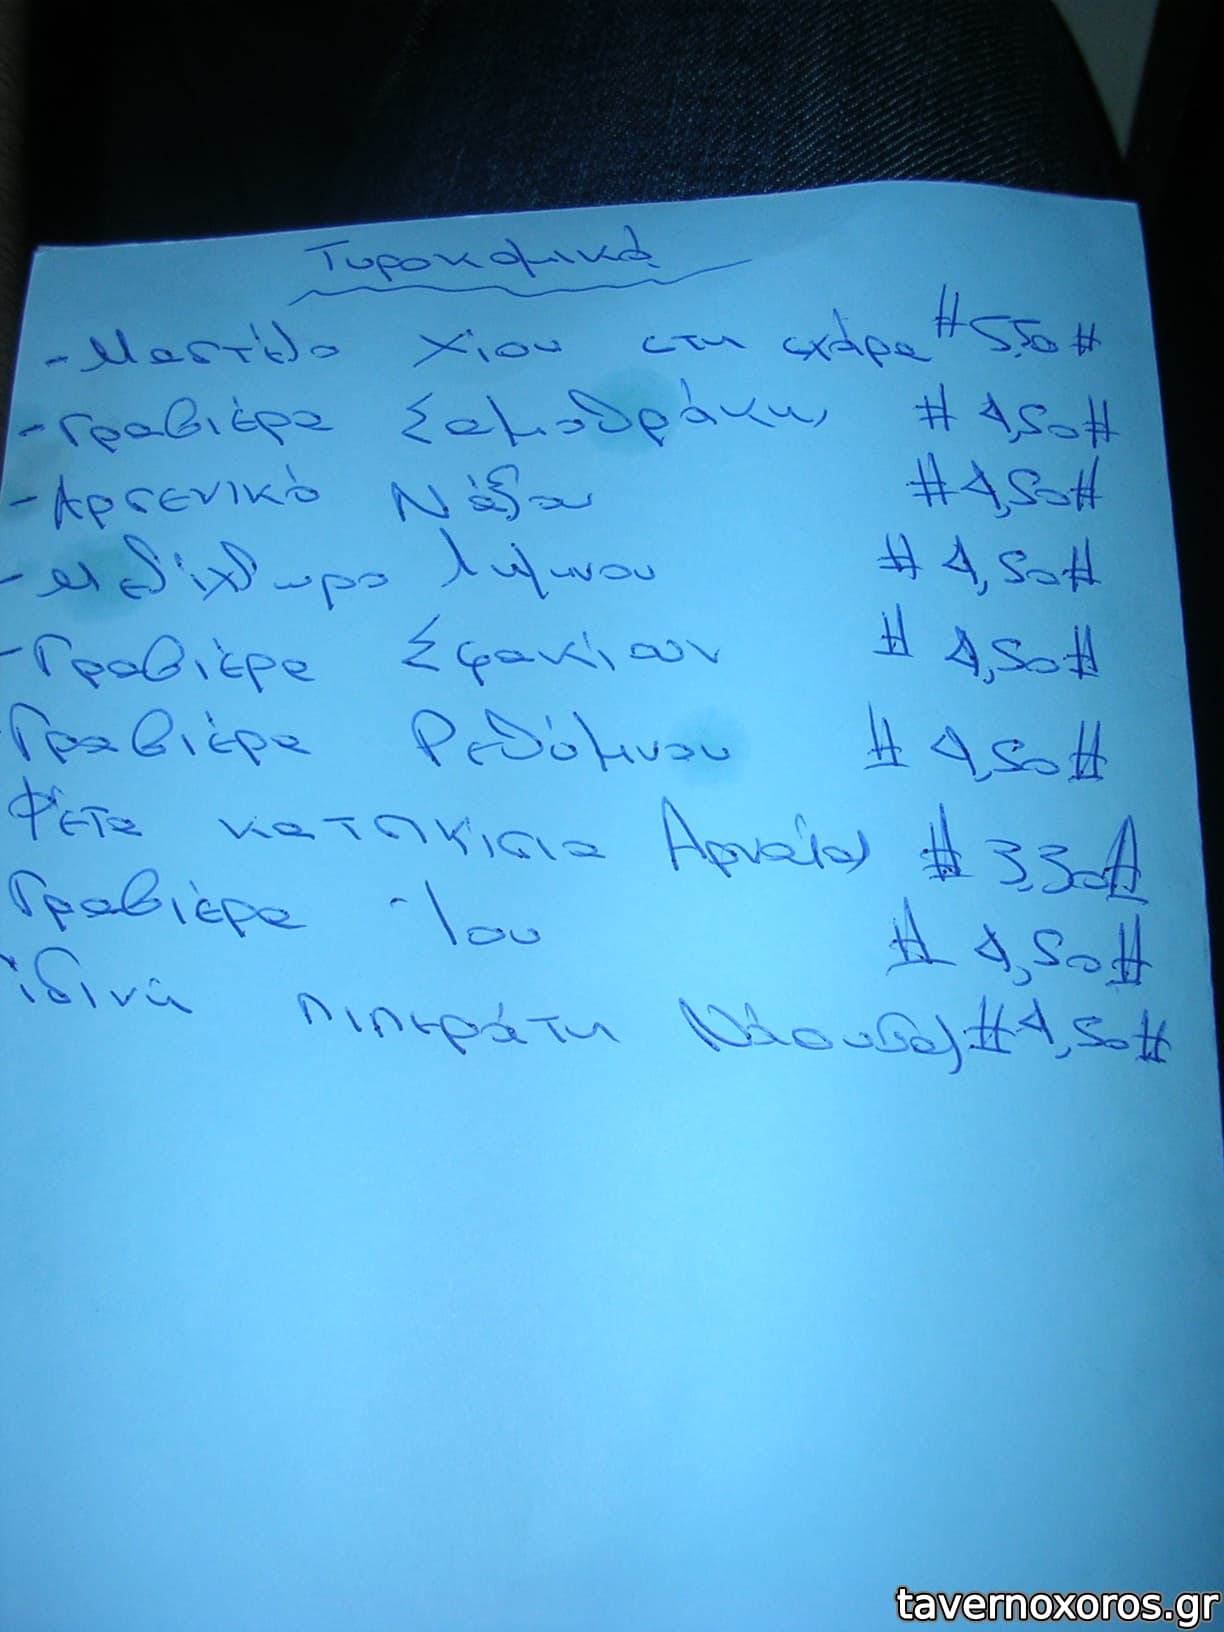 Τυροκομικά
- Μαστέλο Χίου στη σχάρα #5,50#
- Γραβιέρα Σαμοθράκης #4,50#
- Αρσενικό Νάξου #4,50#
- Μελίχλωρο Λήμνου #4,50#
- Γραβιέρα Σφακίων #4,50#
Γραβιέρα Ρεθύμνου #4,50#
Φέτα κατσικίσια Αρναίας #3,30#
Γραβιέρα Ίου #4,50#
πιπεράτη Νάουσας #4,50#
tavernoxoros.gr